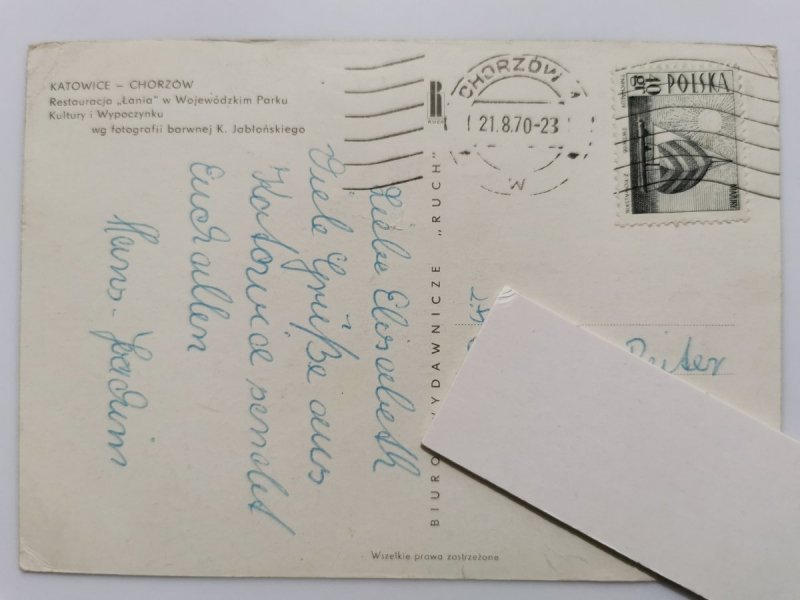 KATOWICE – CHORZÓW
Restauracja „Łania" w Wojewódzkim Parku
Kultury i Wypoczynku
wg fotografii barwnej K. Jabłońskiego
Liebe Elisabeth
Viele Grüße aus
Katowice sendet
Euch allen
Hans-Joachim
BIURO WYDAWNICZE „RUCH"
RUCH
CHORZÓW 1
21.8.70-23
40 gr
POLSKA
MAZURY
Reiter
Wszelkie prawa zastrzeżone